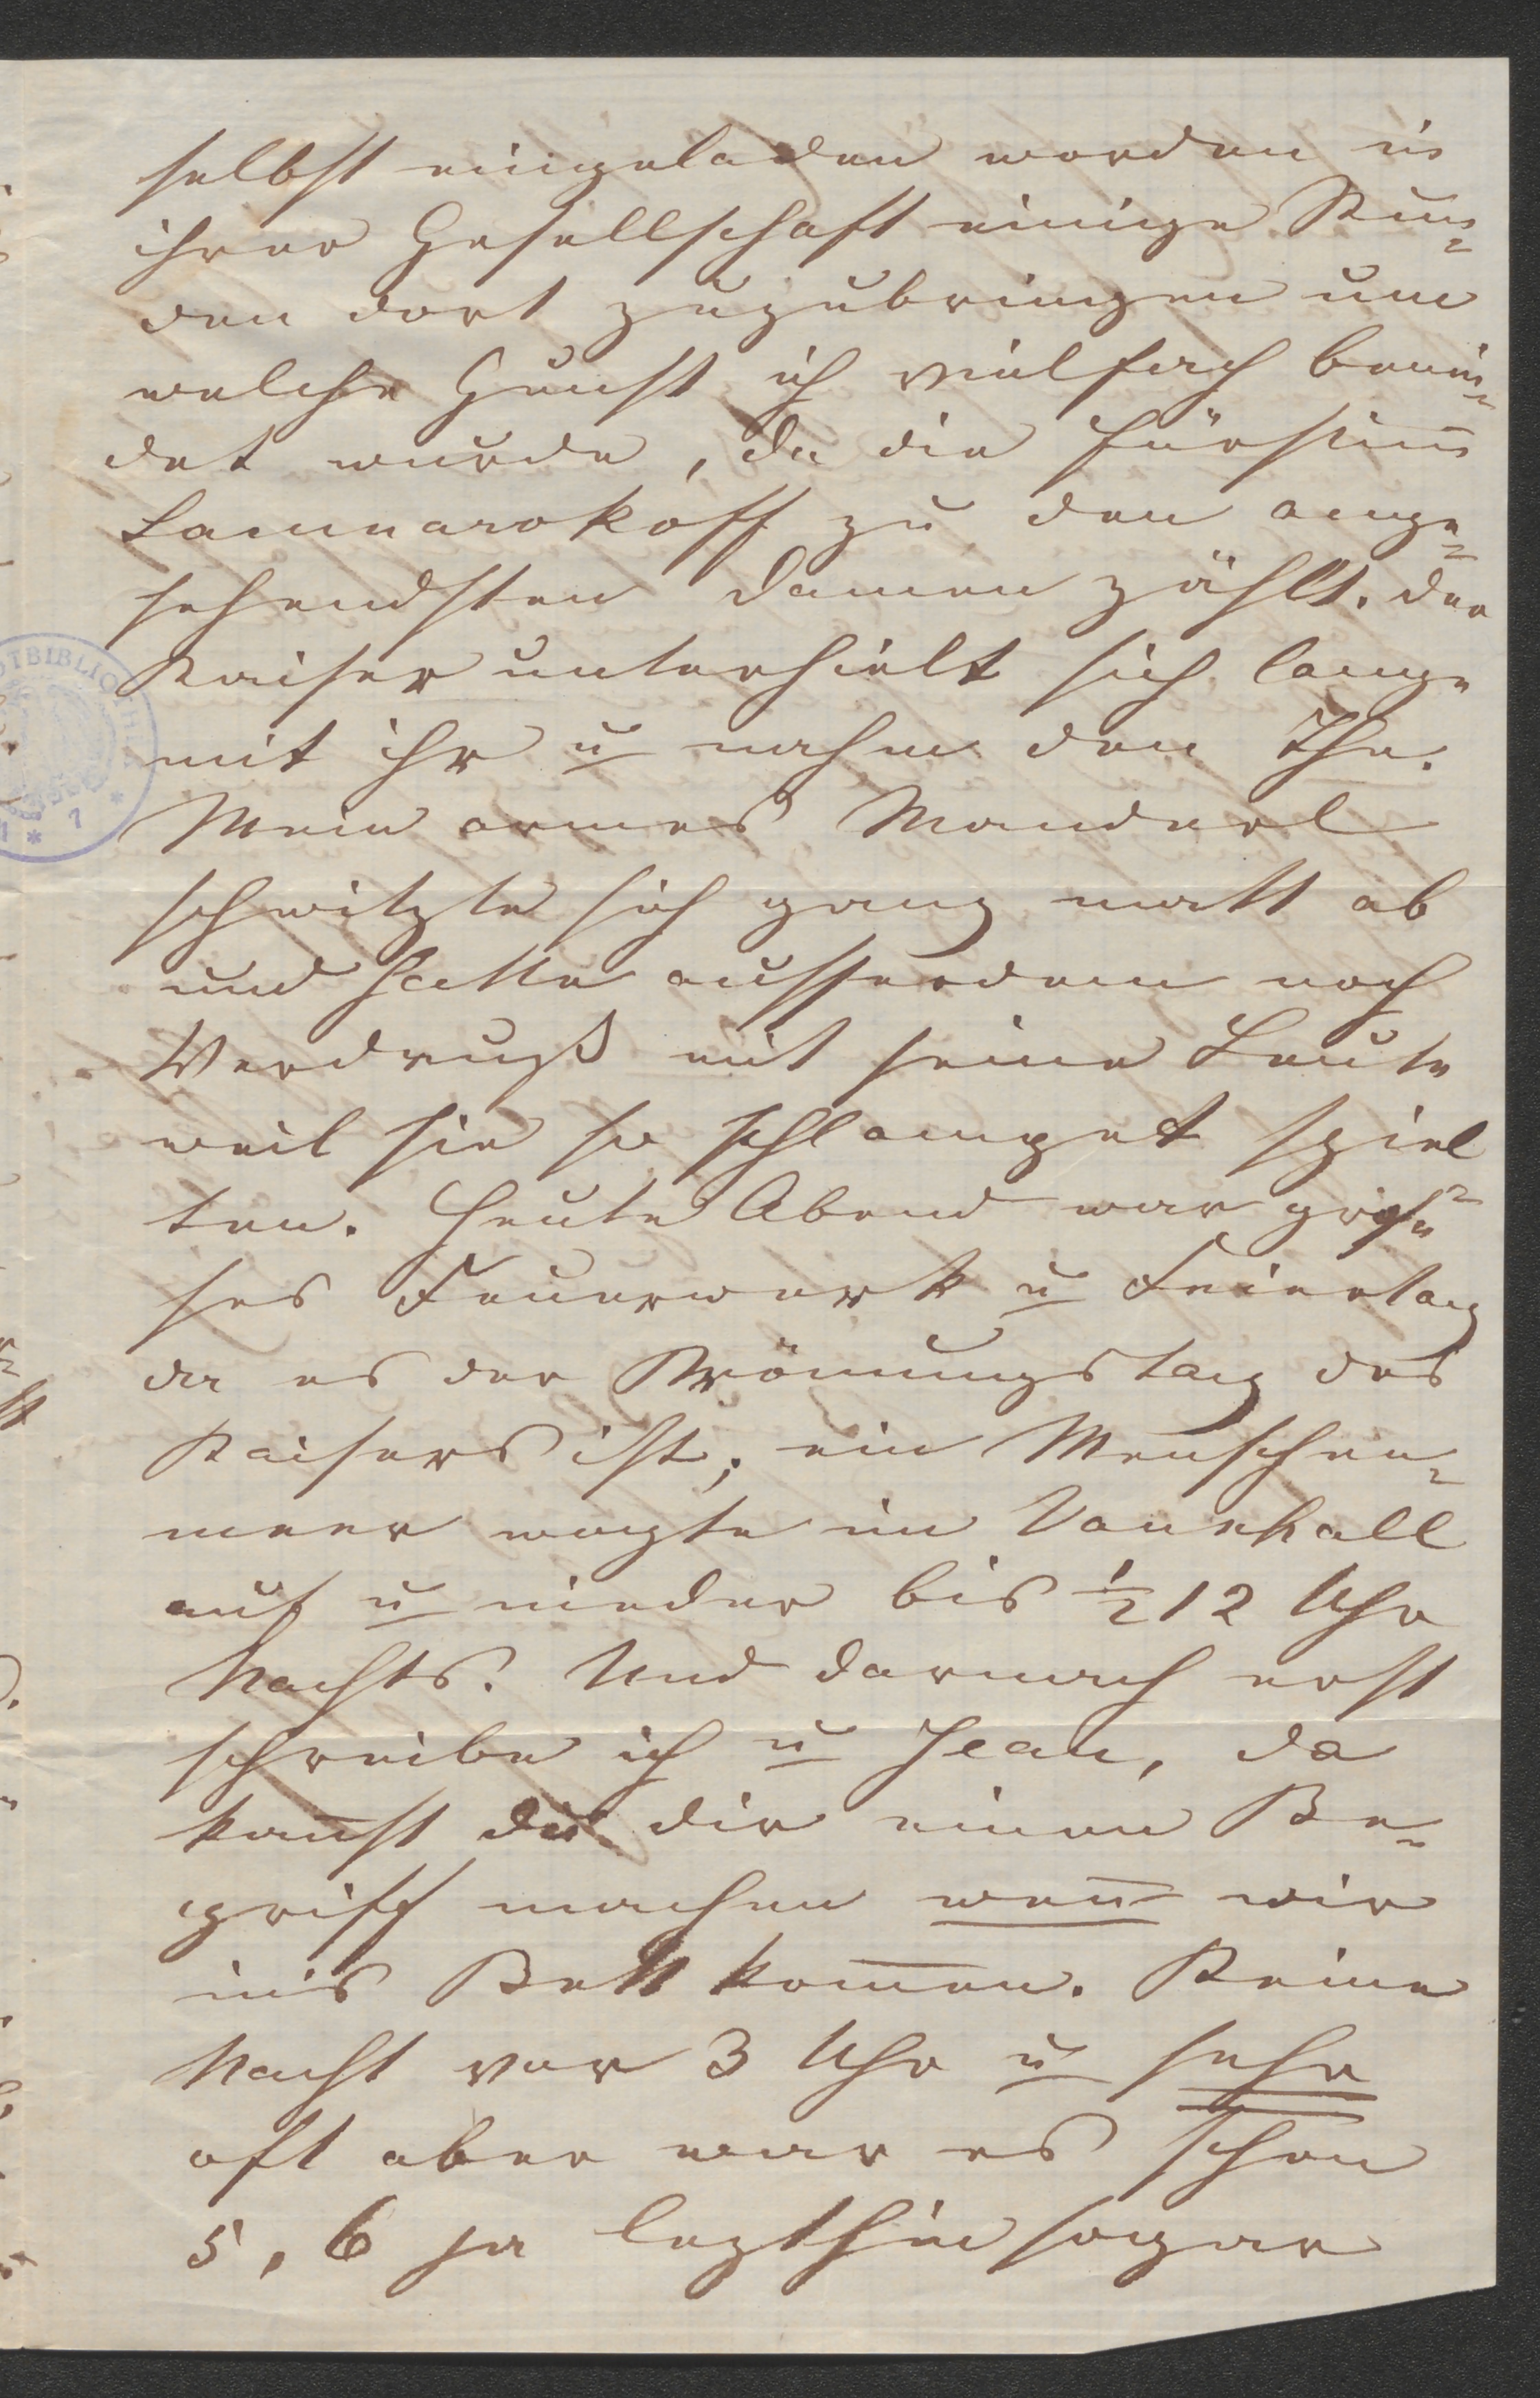 selbst eingeladen worden in
ihrer Gesellschaft einige Stun¬
den dort zuzubringen um
welche Gunst ich vielfach benei¬
det wurde, da die Fürstin̅
Lammarokoff zu den ange¬
sehendsten Damen zählt. Der
Kaiser unterhielt sich lange
mit ihr u nahm den The.
Mein armes Manderl
schwitzte sich ganz matt ab
und hatte ausserdem noch
Verdruß mit seine Leute
weil sie so schlampet spiel
ten. Heute Abend war gros¬
ses Feuerwerk u Feiertag
da es der Krönungstag des
Kaisers ist; ein Menschen¬
meer wogte im Vauxhall
auf u nieder bis ½ 12 Uhr
Nachts. Und darnach erst
schreibe ich u Jean, da
kan̅st du dir einen Be¬
griff machen wen̅ wir
ins Bett kom̅en. Keine
Nacht vor 3 Uhr u sehr
oft aber war es schon
5, 6 ja lezthin sogar
OTBIBLIOTHE
* 1 *